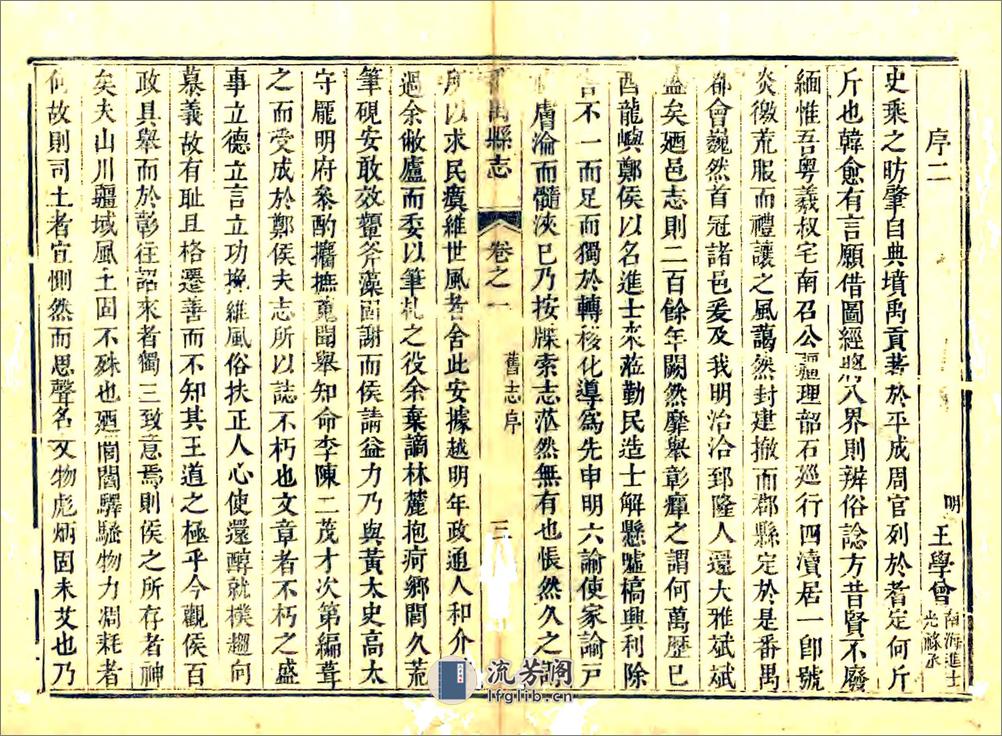 序二
明 王學曾 南海進士光祿丞
史乘之昉肇自典墳禹貢著於平成周官列於耆定何斤
斤也韓愈有言願借圖經將入界則辨俗諗方昔賢不廢
緬惟吾粵羲叔宅南召公疆理韶石巡行四瀆居一卽號
炎徼荒服而禮讓之風藹然封建撤而郡縣定於是番禺
都會巍然首冠諸邑爰及我明治洽郅隆人還大雅斌斌
盛矣廼邑志則二百餘年闕然靡舉彰癉之謂何萬曆巳
酉龍嶼鄭侯以名進士來蒞勤民造士解懸噓槁興利除
害不一而足而獨於轉移化導爲先申明六諭使家諭戸
膚淪而髓浹巳乃按牒索志茫然無有也悵然久之
縣志 卷之一 舊志序 三
所以求民瘼維世風者舍此安據越明年政通人和介
過余敝廬而委以筆札之役余棄謫林麓抱疴鄉閭久荒
筆硯安敢效顰斧藻固謝而侯請益力乃與黃太史高太
守龎明府叅酌攟摭蒐聞舉知命李陳二茂才次第編葺
之而受成於鄭侯夫志所以誌不朽也文章者不朽之盛
事立德立言立功挽維風俗扶正人心使還醇就樸趨向
慕義故有耻且格遷善而不知其王道之極乎今觀侯百
政具舉而於彰往詔來者獨三致意焉則侯之所存者神
矣夫山川疆域風土固不殊也廼閭閻驛騷物力凋耗者
何故則司土者宜惻然而思聲名文物彪炳固未艾也乃
流芳阁
lfglib.cn